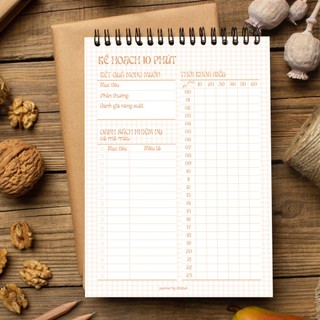 KẾ HOẠCH 10 PHÚT
KẾT QUẢ MONG MUỐN
Mục tiêu
Phần thưởng
Đánh giá năng suất
DANH SÁCH NHIỆM VỤ
và mã màu
Mục tiêu
Miêu tả
THỜI KHÓA BIỂU
10 20 30 40 50 60
00
01
02
03
04
05
06
07
08
09
10
11
12
13
14
15
16
17
18
19
20
21
22
23